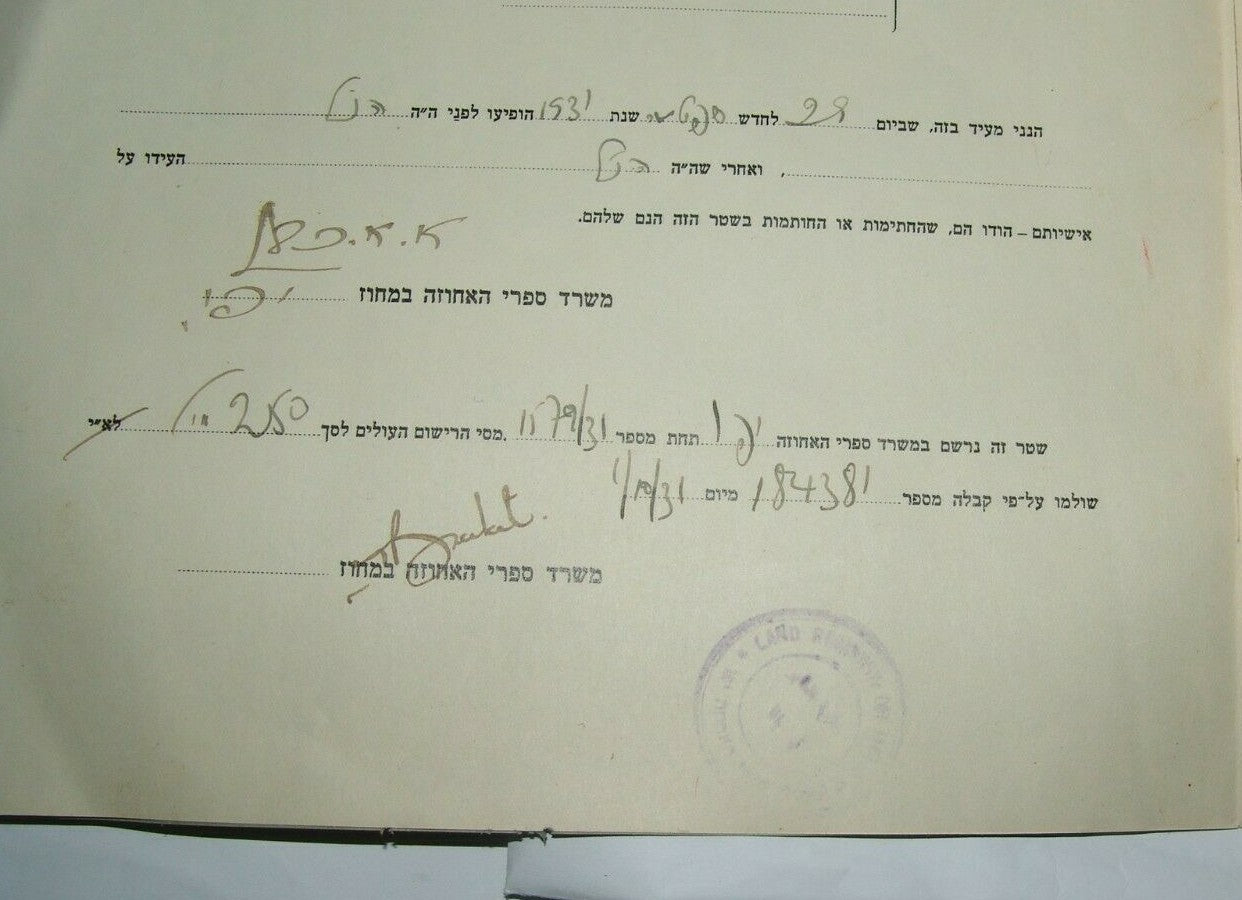 הנני מעיד בזה, שביום 29 לחדש ספטמבר שנת 1931 הופיעו לפני ה״ה הנ״ל
, ואחרי שה״ה הנ״ל העידו על
אישיותם – הודו הם, שהחתימות או החותמות בשטר הזה הנם שלהם.
א. א.
משרד ספרי האחוזה במחוז יפו
שטר זה נרשם במשרד ספרי האחוזה יפו תחת מספר 1579/31 .מסי הרישום העולים לסך 250 מיל לא״י
שולמו על־פי קבלה מספר 184381 מיום 1/10/31
משרד ספרי האחוזה במחוז
LAND REGISTRY